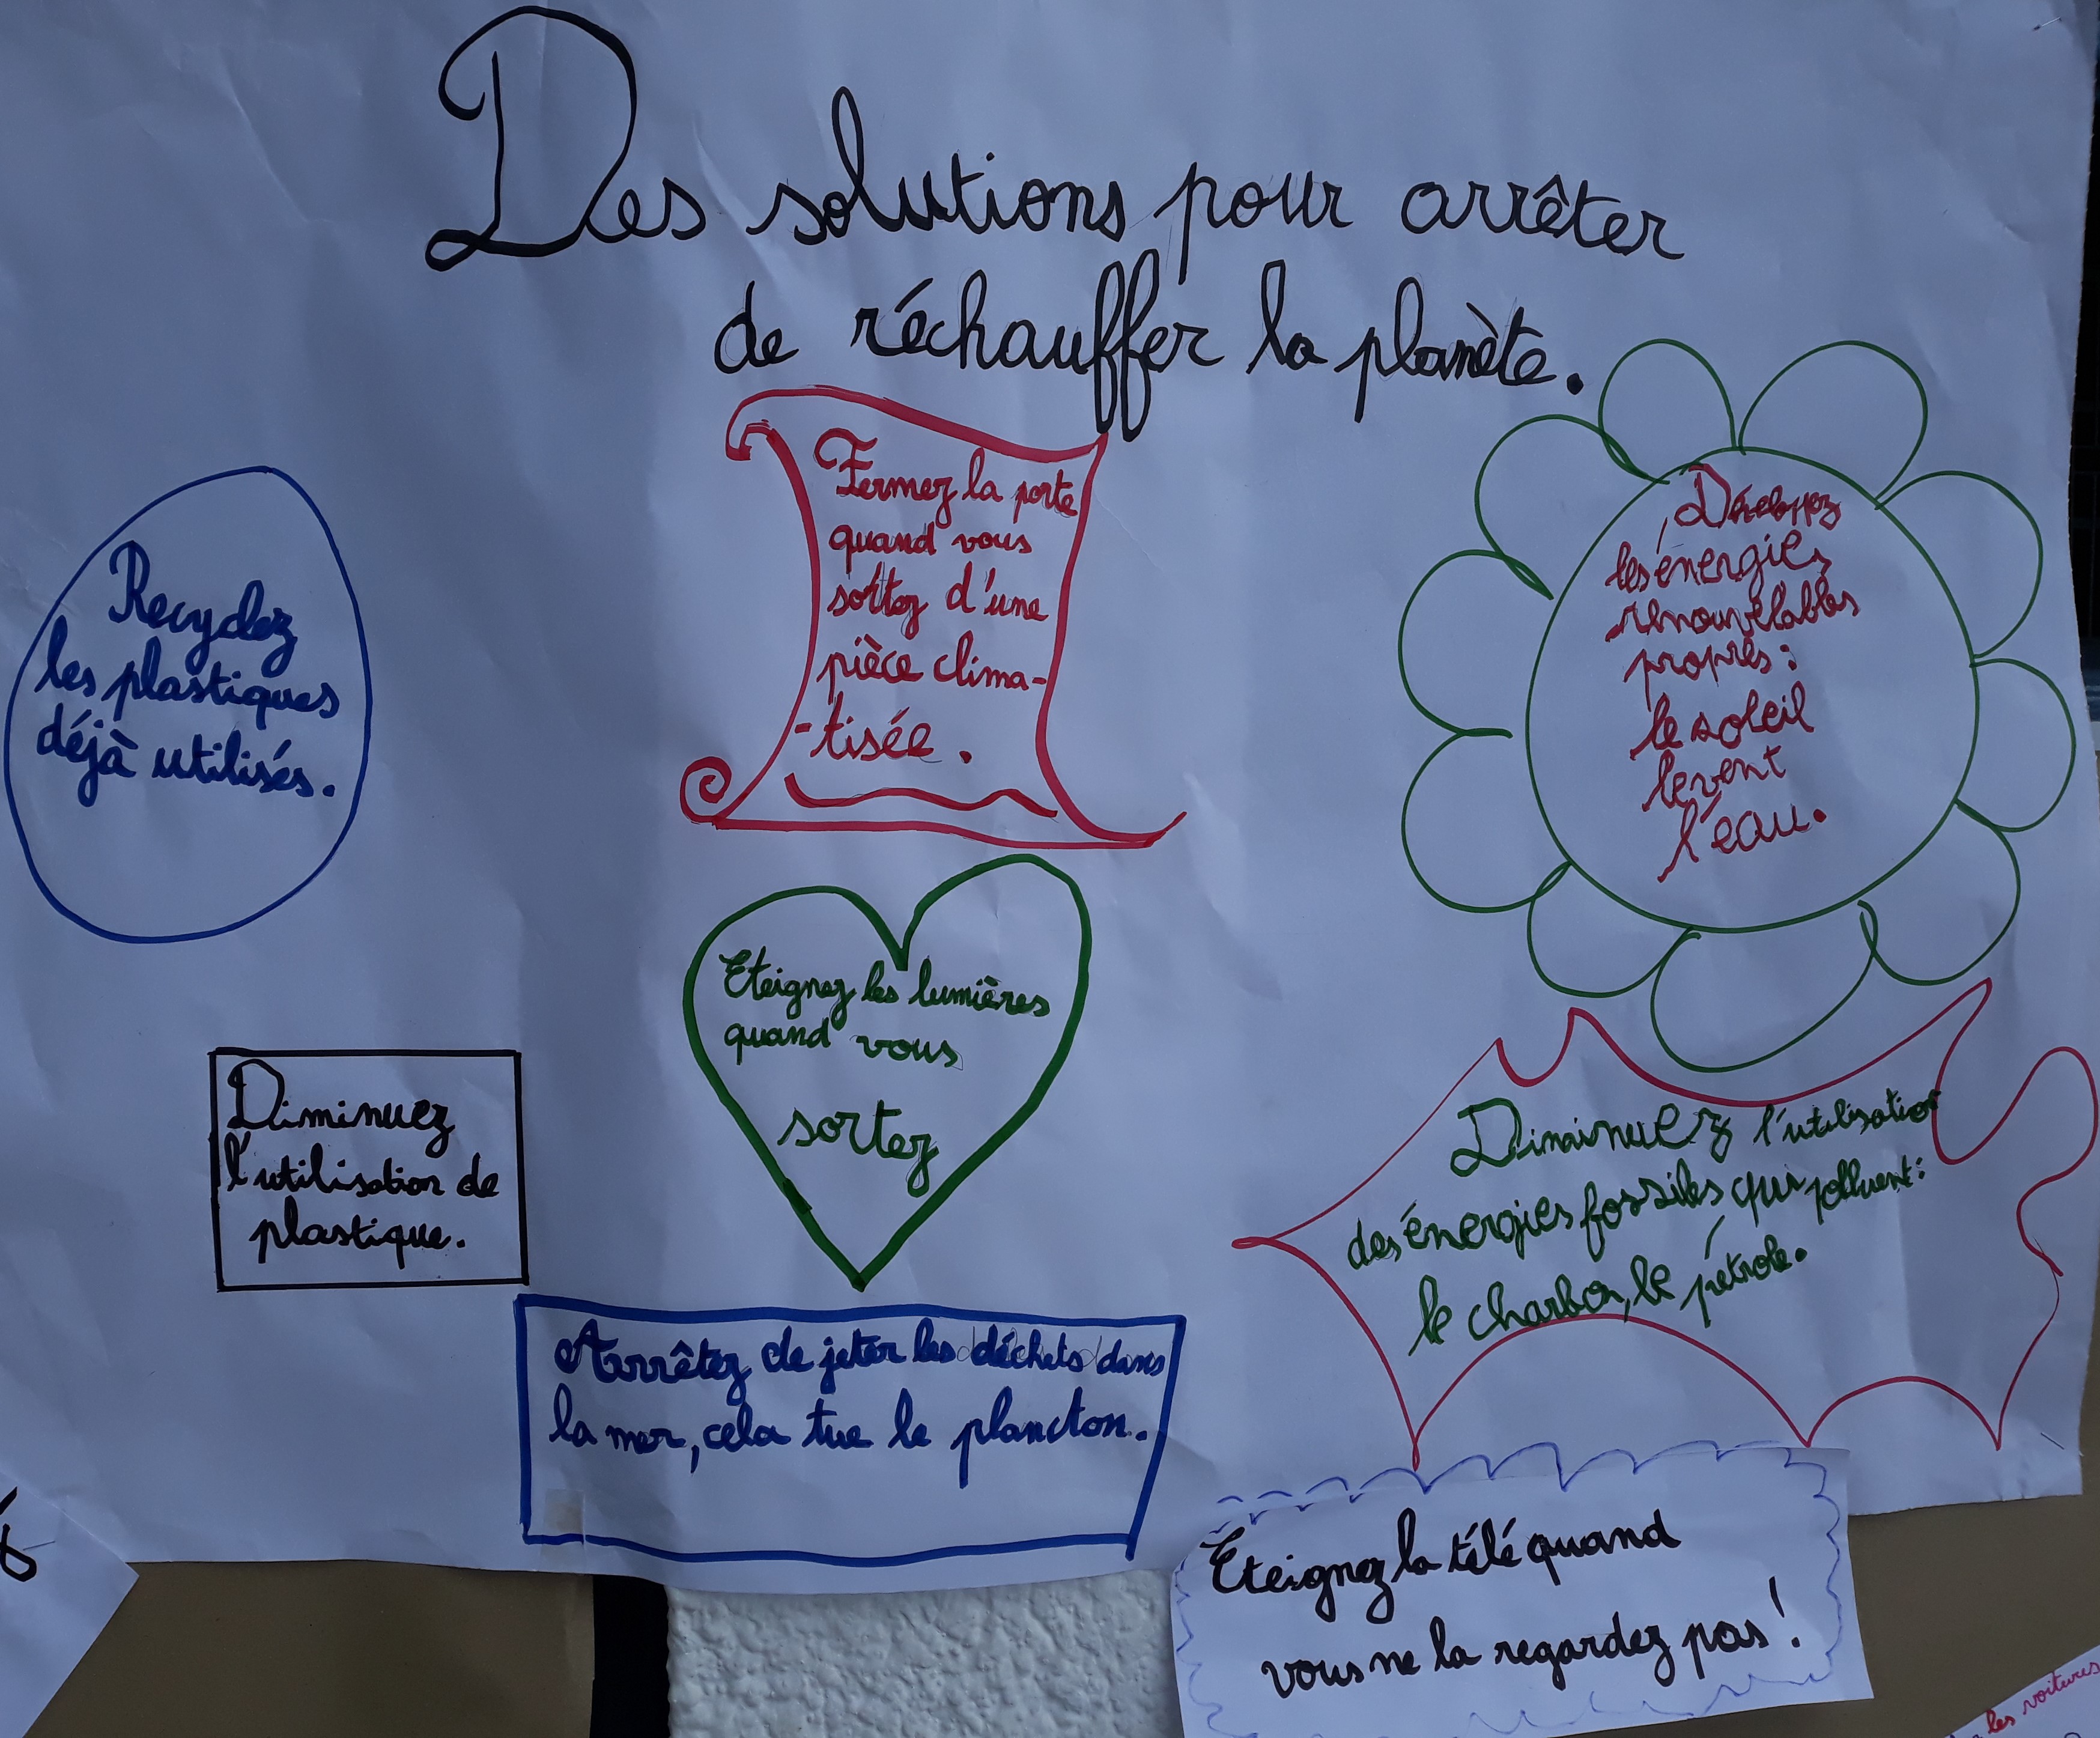 Des solutions pour arrêter
de réchauffer la planète.
Recyclez
les plastiques
déjà utilisés.
Fermez la porte
quand vous
sortez d'une
pièce clima-
-tisée.
Développez
les énergies
renouvelables
propres:
le soleil
le vent
l'eau.
Eteignez les lumières
quand vous
sortez
Diminuez
l'utilisation de
plastique.
Diminuez l'utilisation
des énergies fossiles qui polluent:
le charbon, le pétrole.
Arrêtez de jeter les déchets dans
la mer, cela tue le plancton.
Eteignez la télé quand
vous ne la regardez pas!
les voitures